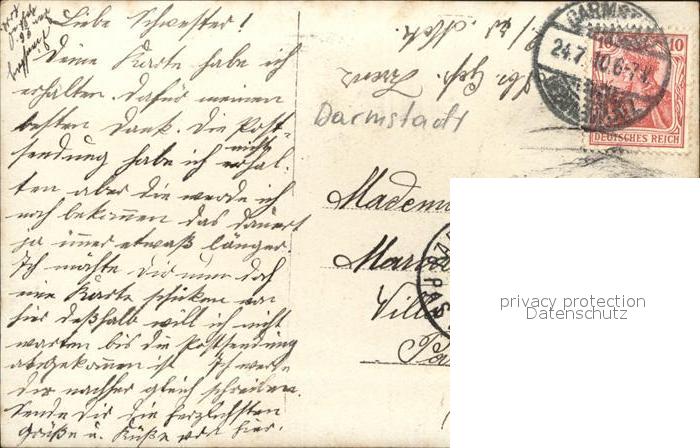 Liebe Schwester!
Deine Karte habe ich
erhalten. Dafür meinen
besten Dank. Die Post-
sendung habe ich nicht erhal-
ten aber die werde ich
noch bekommen das dauert
ja immer etwaß länger.
Ich möchte dir nun doch
eine Karte schicken von
hier deßhalb will ich nicht
warten bis die Postsendung
angekommen ist Ich werde
dir nachher gleich schreiben.
sende dir die herzlichsten
Grüße u. Küße von hier.
Darmstadt
DARMST
24.7.10.6-7
10 10
DEUTSCHES REICH
Madem
Mar
Vill
Pa
PAS
privacy protection
Datenschutz